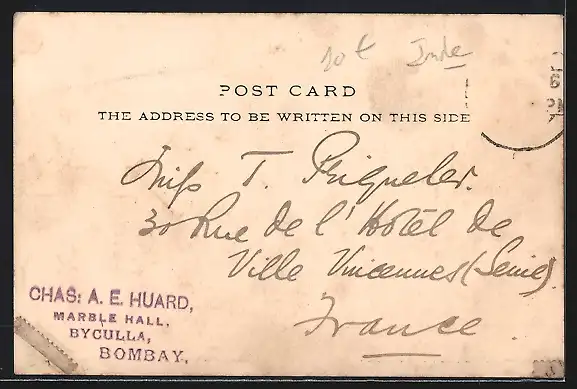 10 € Inde
6
PM
POST CARD
THE ADDRESS TO BE WRITTEN ON THIS SIDE
Miss T.
30 Rue de l'Hôtel de
Ville Vincennes (Seine).
France.
CHAS: A. E. HUARD,
MARBLE HALL,
BYCULLA,
BOMBAY.